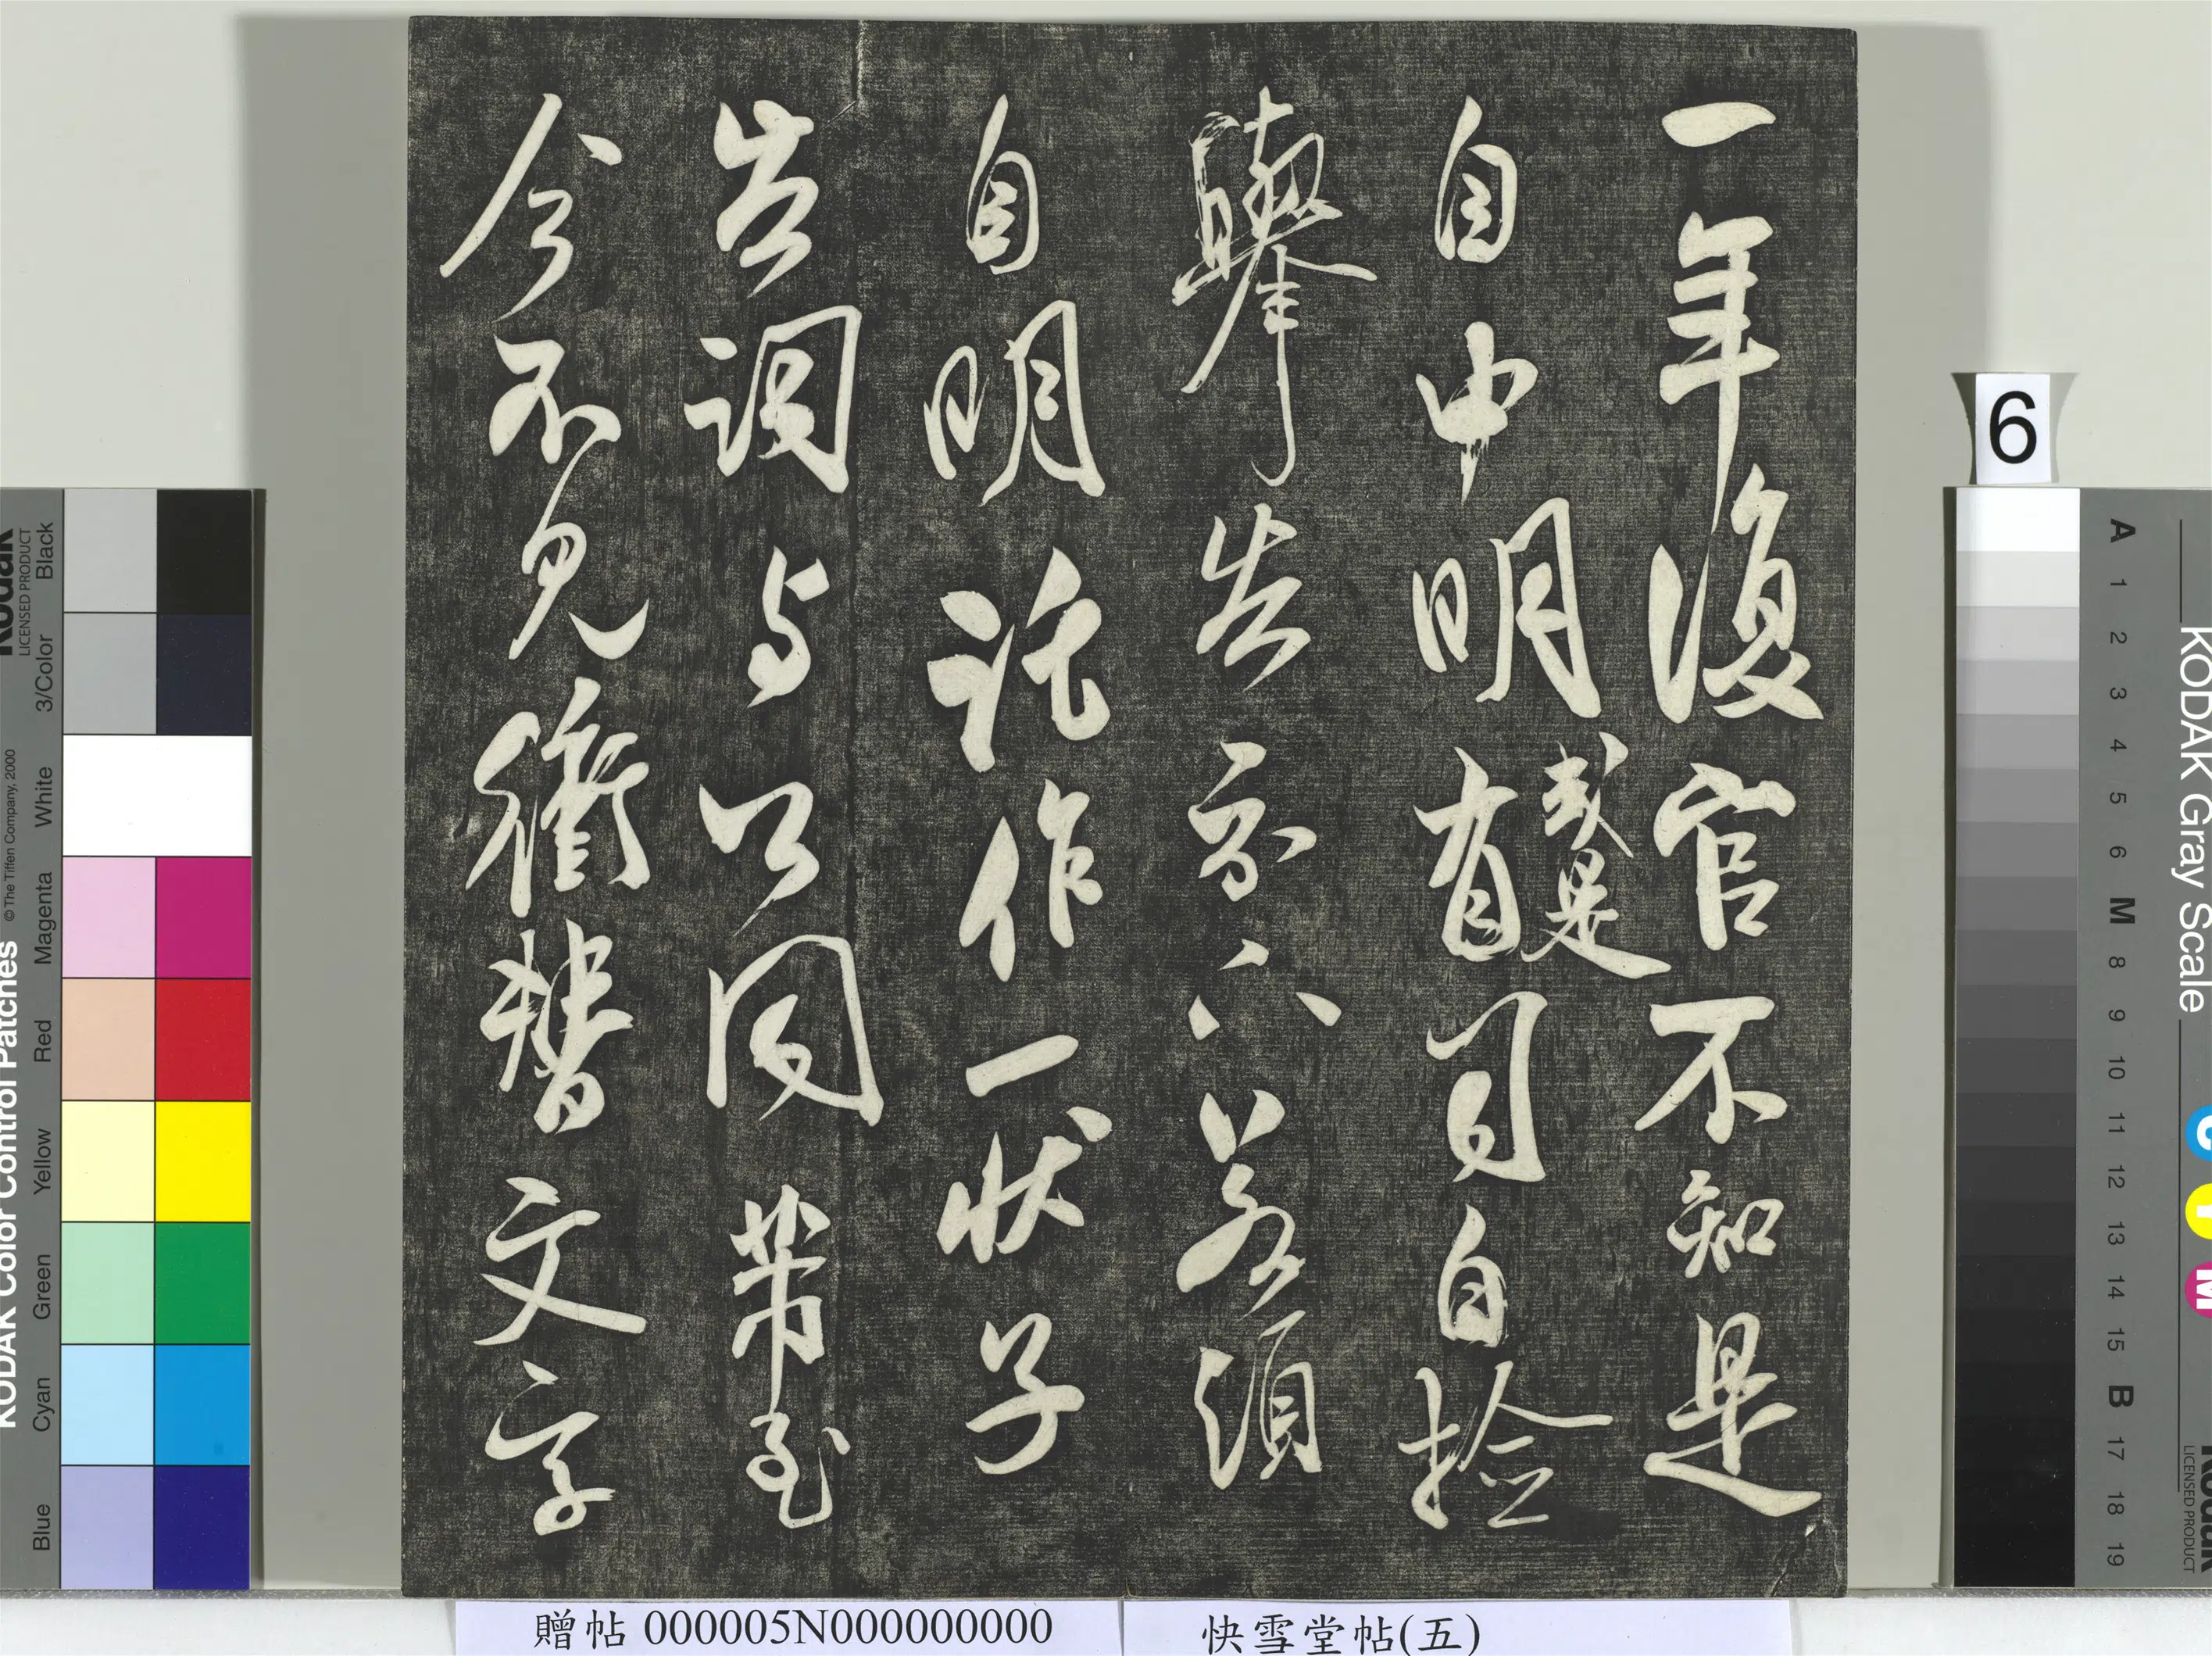 一年復官不知是
自申明或是有司自撿
舉告示若須
自明託作一狀子
告調与公同帶至
今不見衝替文字
6
贈帖 000005N000000000
快雪堂帖(五)
KODAK Color Control Patches
© The Tiffen Company, 2000
Kodak
LICENSED PRODUCT
Blue Cyan Green Yellow Red Magenta White 3/Color Black
KODAK Gray Scale
A 1 2 3 4 5 6 M 8 9 10 11 12 13 14 15 B 17 18 19
C Y M
Kodak
LICENSED PRODUCT